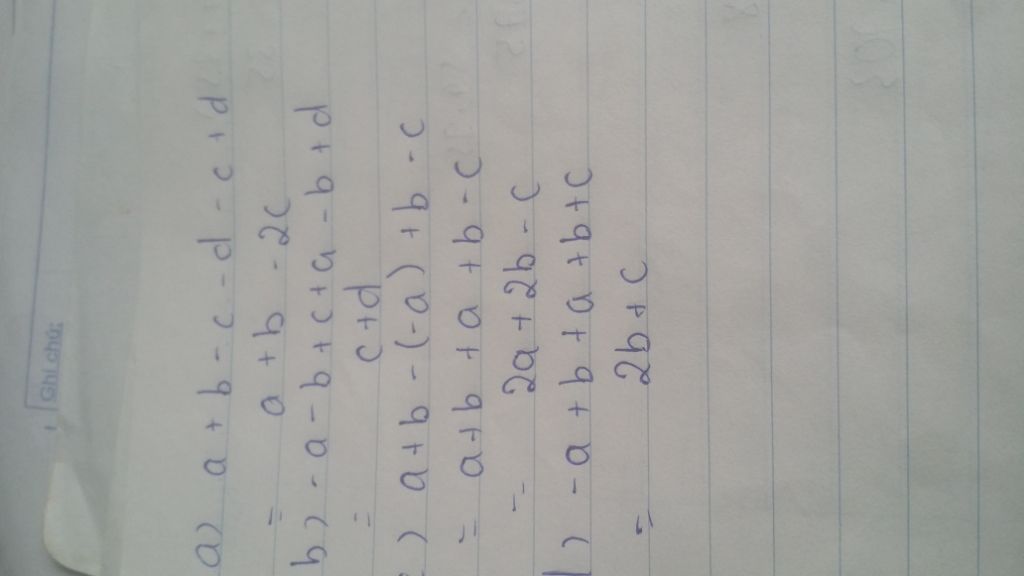 Ghi chú:
a) a + b - c - d - c + d
= a + b - 2c
b) - a - b + c + a - b + d
= c + d
) a + b - (-a) + b - c
= a + b + a + b - c
= 2a + 2b - c
) - a + b + a + b + c
= 2b + c